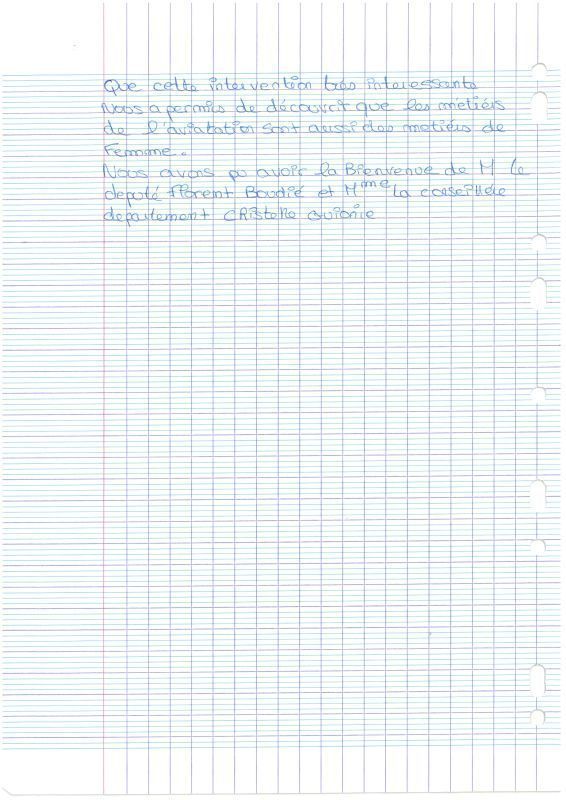 Que cette intervention très interessante
Nous a permis de découvrir que les métiers
de l'aviation sont aussi des metiérs de
Femme.
Nous avons pu avoir la Bienvenue de M le
deputé florent Boudié et Mme la conseillère
departement CRistelle Guionie